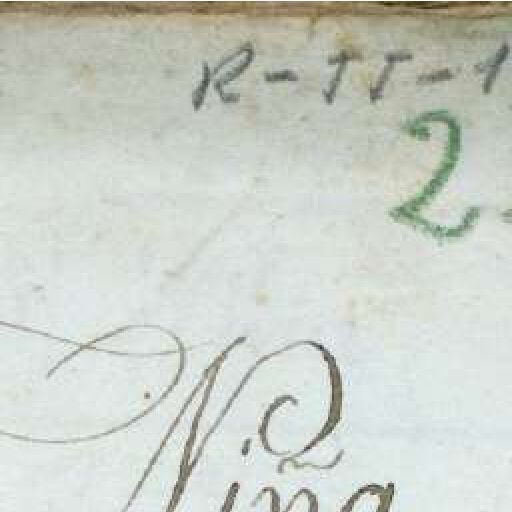 R-II-1
2
Niña